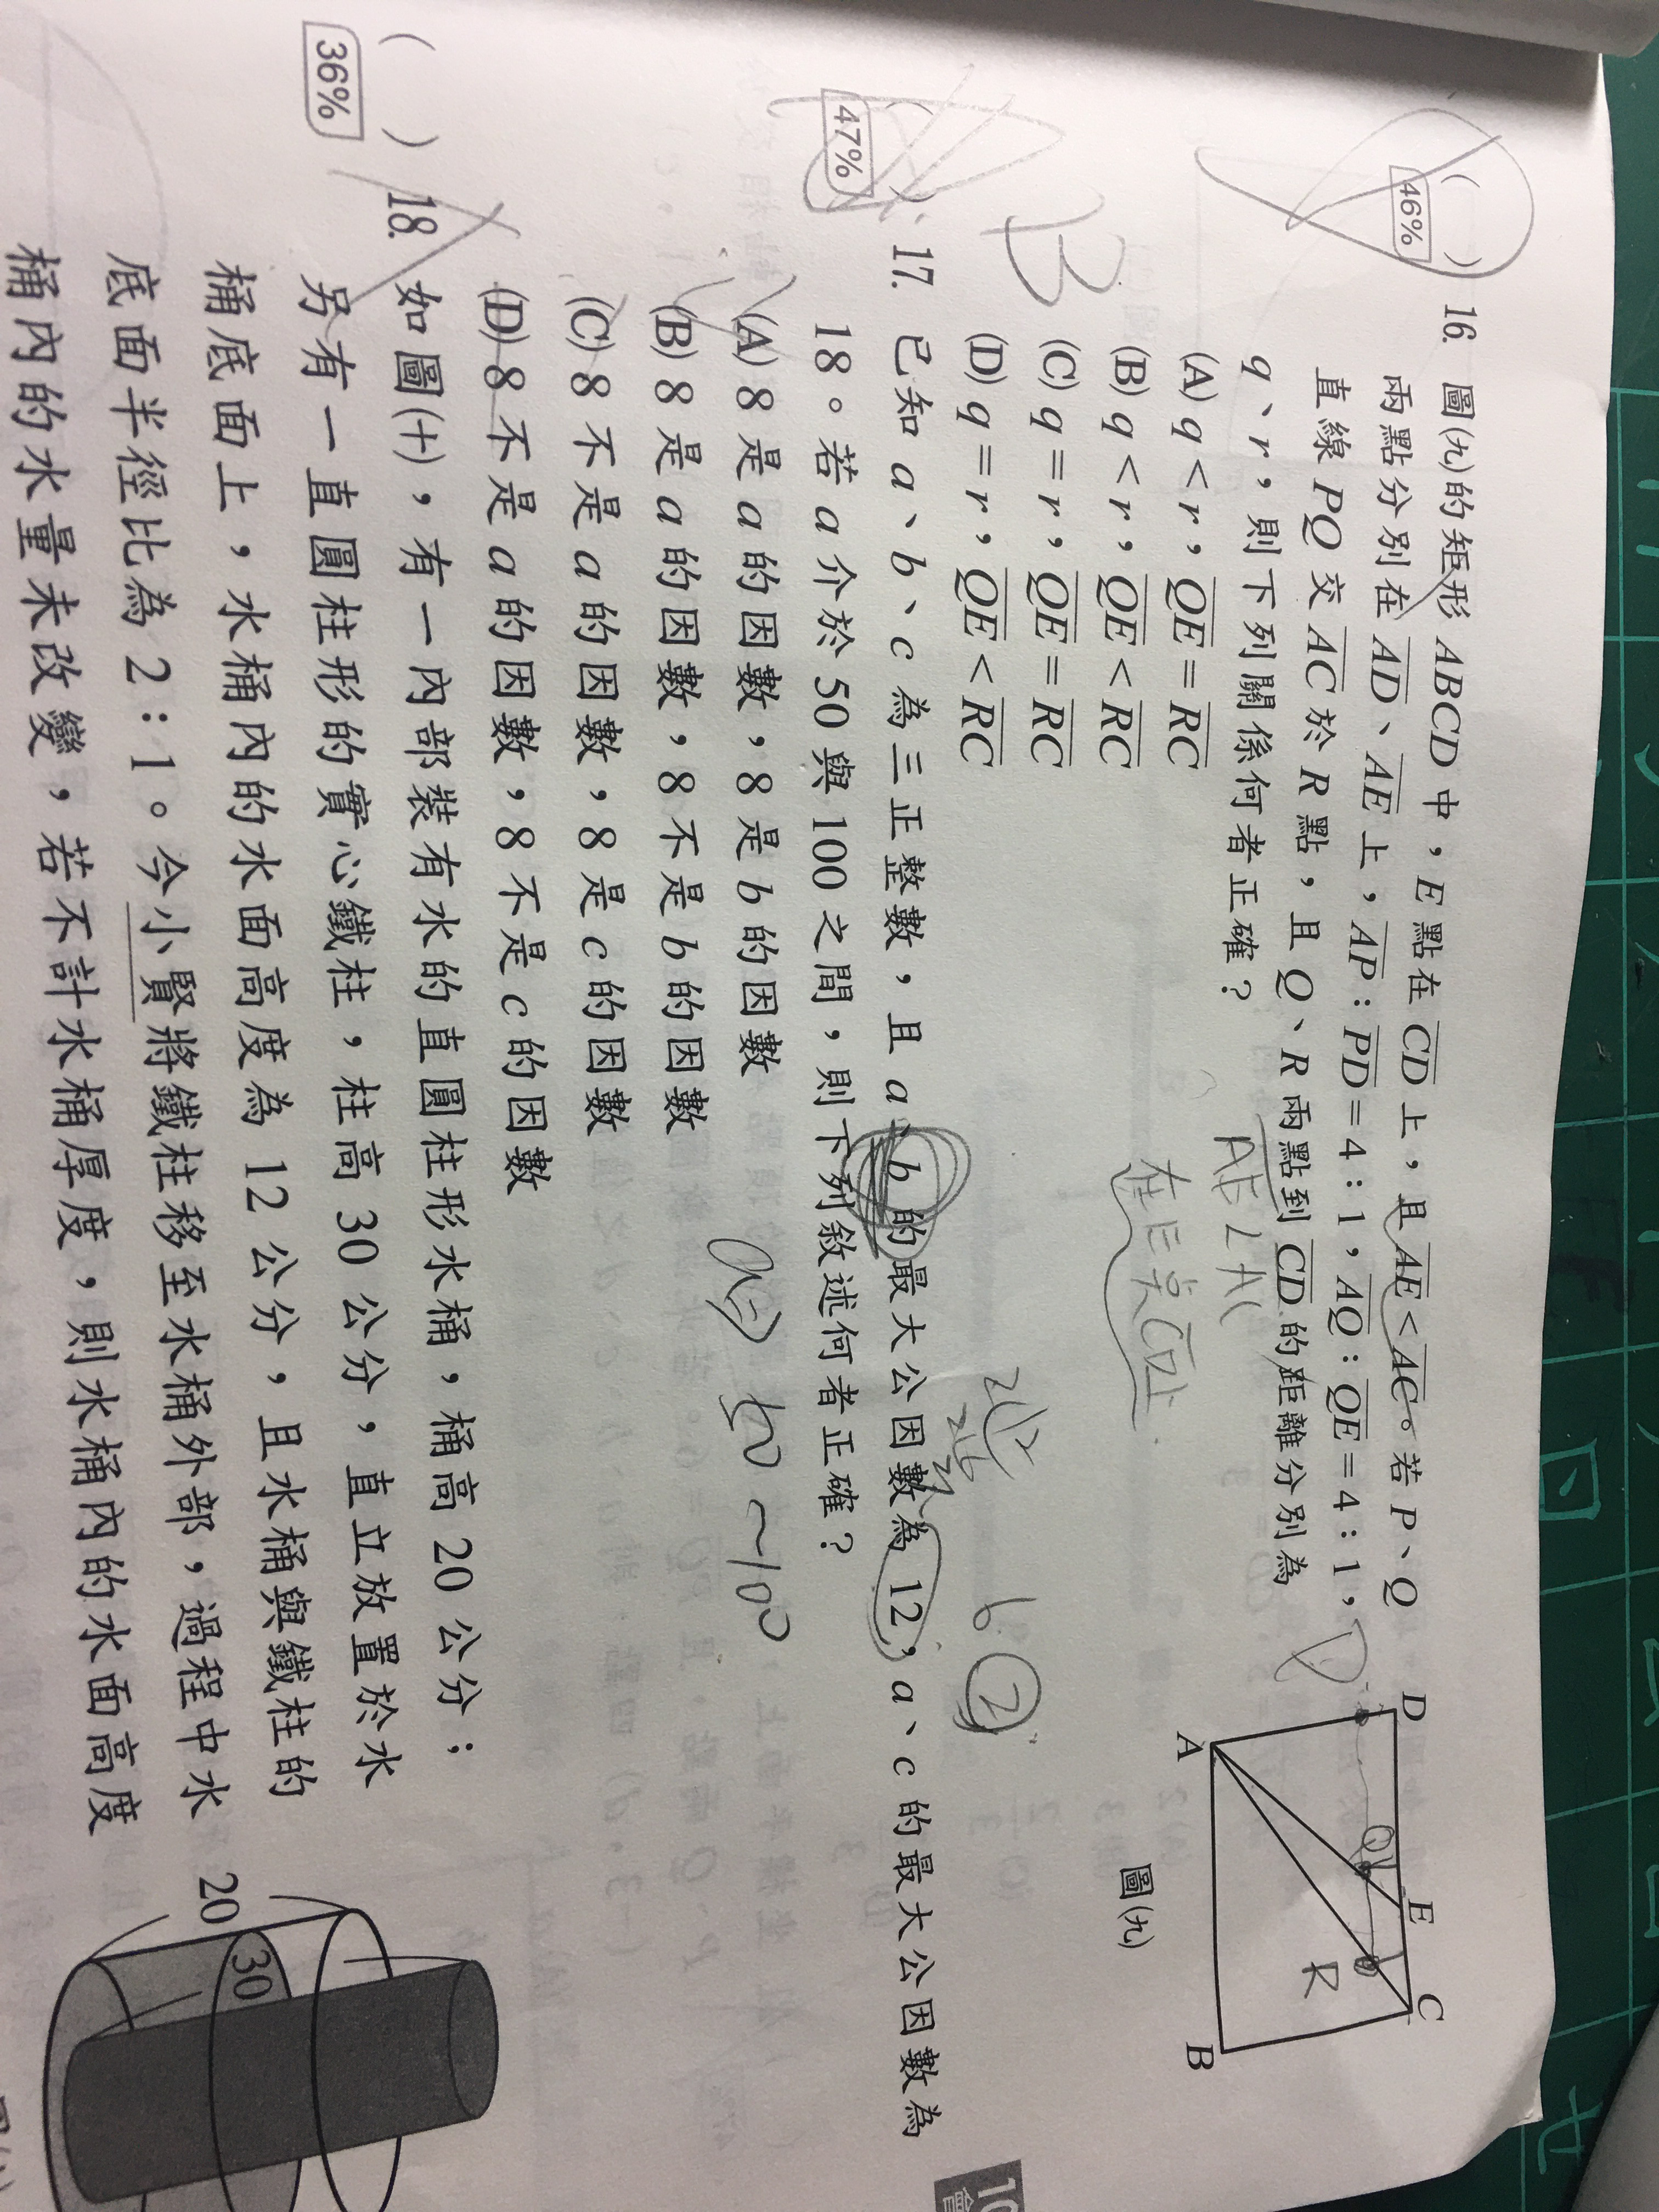 ( ) 16. 圖(九)的矩形ABCD中,E點在CD上,且AE<AC。若P、Q
46%
兩點分別在AD、AE上,AP:PD=4:1,AQ:QE=4:1,
直線PQ交AC於R點,且Q、R兩點到CD的距離分別為
q、r,則下列關係何者正確?
(A) q<r,QE=RC
(B) q<r,QE<RC
(C) q=r,QE=RC
(D) q=r,QE<RC
D
E
C
A
B
Q
R
圖(九)
AE<AC
在E笑CD上
B
( ) 17. 已知a、b、c為三正整數,且a、b的最大公因數為12,a、c的最大公因數為
47%
18。若a介於50與100之間,則下列敘述何者正確?
(A) 8是a的因數,8是b的因數
(B) 8是a的因數,8不是b的因數
(C) 8不是a的因數,8是c的因數
(D) 8不是a的因數,8不是c的因數
2 12
2 6
6 ②
a⇒ 50~100
( ) 18. 如圖(十),有一內部裝有水的直圓柱形水桶,桶高20公分;
36%
另有一直圓柱形的實心鐵柱,柱高30公分,直立放置於水
桶底面上,水桶內的水面高度為12公分,且水桶與鐵柱的
底面半徑比為2:1。今小賢將鐵柱移至水桶外部,過程中水
桶內的水量未改變,若不計水桶厚度,則水桶內的水面高度
20
30